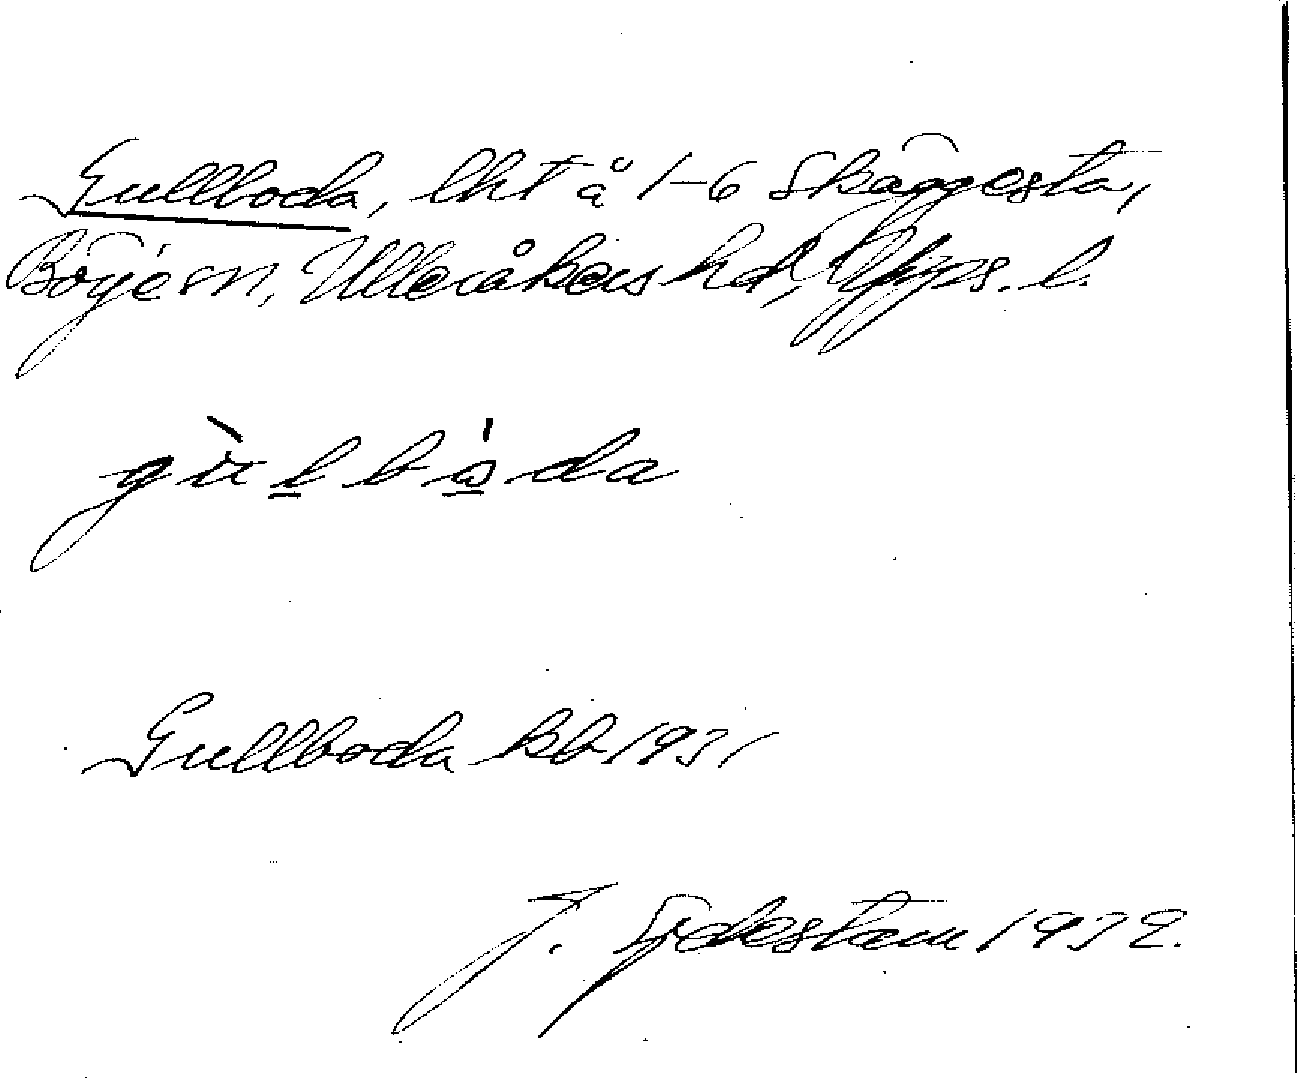 Gullboda, lht å 1-6 Skäggesta,
Börje sn, Ulleråkers hd, Upps. l.
gùlbòda
Gullboda kb 1931
J. Sjdestam 1932.